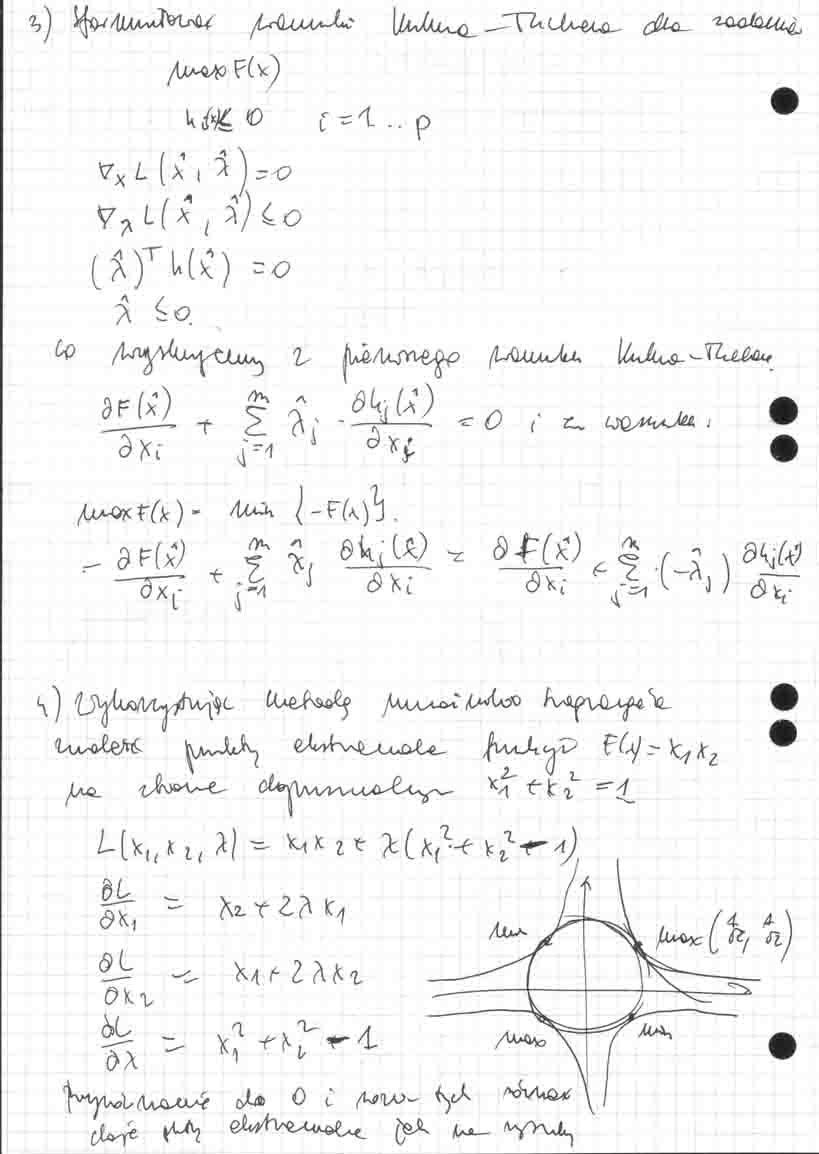 3) Sformułować warunki Kuhna-Tuckera dla zadania
max F(x)
h_i(x) ≤ 0 i = 1 .. p
∇_x L(x̂, λ̂) = 0
∇_λ L(x̂, λ̂) ≤ 0
(λ̂)^T h(x̂) = 0
λ̂ ≤ 0.
co z pierwszego warunku Kuhna-
∂F(x̂)/∂x_i + Σ_{j=1}^{m} λ̂_j · ∂h_j(x̂)/∂x_i = 0 i
max F(x) = min {-F(x)}.
- ∂F(x̂)/∂x_i + Σ_{j=1}^{m} λ̂_j ∂h_j(x̂)/∂x_i = ∂F(x̂)/∂x_i + Σ_{j=1}^{m} · (-λ̂_j) ∂h_j(x̂)/∂x_i
4) Wykorzystując metodę mnożników Lagrange'a
znaleźć punkty ekstremalne funkcji F(x) = x_1 x_2
na zbiorze dopuszczalnym x_1^2 + x_2^2 = 1
L(x_1, x_2, λ) = x_1 x_2 + λ(x_1^2 + x_2^2 - 1)
∂L/∂x_1 = x_2 + 2λx_1
∂L/∂x_2 = x_1 + 2λx_2
∂L/∂λ = x_1^2 + x_2^2 - 1
min max (1/√2, 1/√2)
max min
Przyrównanie do 0 i tych równań
daje pkty ekstremalne jak na rysunku